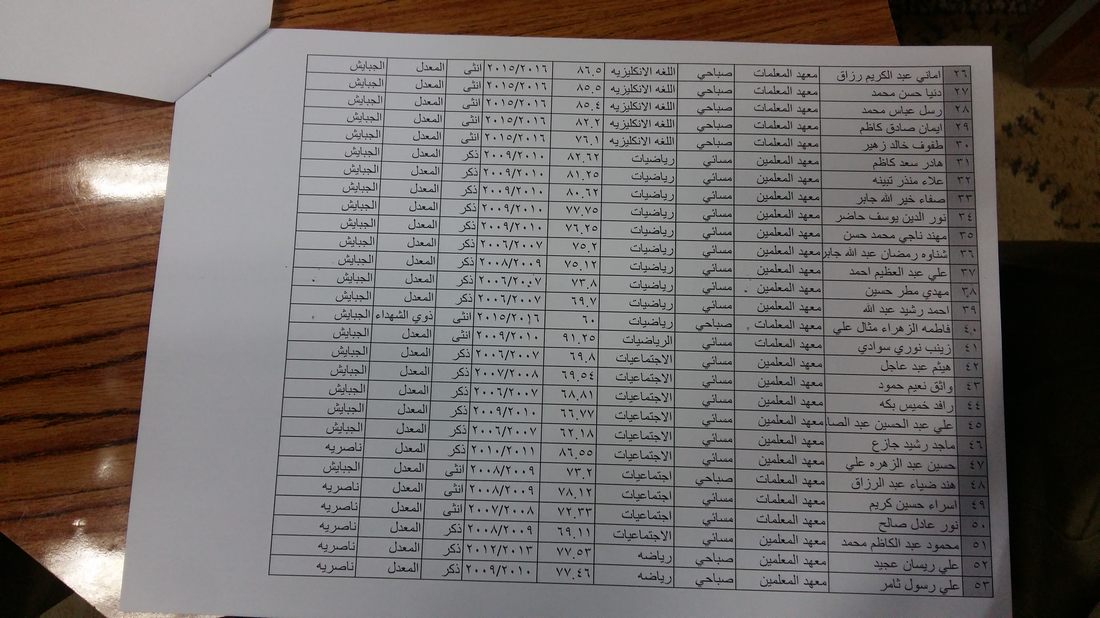 ٢٦ اماني عبد الكريم رزاق معهد المعلمات صباحي اللغه الانكليزيه ٨٦.٥ ٢٠١٥/٢٠١٦ انثى المعدل الجبايش
٢٧ دنيا حسن محمد معهد المعلمات صباحي اللغه الانكليزيه ٨٥.٥ ٢٠١٥/٢٠١٦ انثى المعدل الجبايش
٢٨ رسل عباس محمد معهد المعلمات صباحي اللغه الانكليزيه ٨٥.٤ ٢٠١٥/٢٠١٦ انثى المعدل الجبايش
٢٩ ايمان صادق كاظم معهد المعلمات صباحي اللغه الانكليزيه ٨٢.٢ ٢٠١٥/٢٠١٦ انثى المعدل الجبايش
٣٠ طفوف خالد زهير معهد المعلمات صباحي اللغه الانكليزيه ٧٦.١ ٢٠١٥/٢٠١٦ انثى المعدل الجبايش
٣١ هادر سعد كاظم معهد المعلمين مسائي رياضيات ٨٢.٦٢ ٢٠٠٩/٢٠١٠ ذكر المعدل الجبايش
٣٢ علاء منذر تبينه معهد المعلمين مسائي رياضيات ٨١.٢٥ ٢٠٠٩/٢٠١٠ ذكر المعدل الجبايش
٣٣ صفاء خير الله جابر معهد المعلمين مسائي رياضيات ٨٠.٦٢ ٢٠٠٩/٢٠١٠ ذكر المعدل الجبايش
٣٤ نور الدين يوسف حاضر معهد المعلمين مسائي رياضيات ٧٧.٧٥ ٢٠٠٩/٢٠١٠ ذكر المعدل الجبايش
٣٥ مهند ناجي محمد حسن معهد المعلمين مسائي رياضيات ٧٦.٢٥ ٢٠٠٩/٢٠١٠ ذكر المعدل الجبايش
٣٦ شناوه رمضان عبد الله جابر معهد المعلمين مسائي رياضيات ٧٥.٢ ٢٠٠٦/٢٠٠٧ ذكر المعدل الجبايش
٣٧ علي عبد العظيم احمد معهد المعلمين مسائي رياضيات ٧٥.١٢ ٢٠٠٨/٢٠٠٩ ذكر المعدل الجبايش
٣٨ مهدي مطر حسين معهد المعلمين مسائي رياضيات ٧٣.٨ ٢٠٠٦/٢٠٠٧ ذكر المعدل الجبايش
٣٩ احمد رشيد عبد الله معهد المعلمين مسائي رياضيات ٦٩.٧ ٢٠٠٦/٢٠٠٧ ذكر المعدل الجبايش
٤٠ فاطمه الزهراء مثال علي معهد المعلمات صباحي رياضيات ٦٠ ٢٠١٥/٢٠١٦ انثى ذوي الشهداء الجبايش
٤١ زينب نوري سوادي معهد المعلمات مسائي الرياضيات ٩١.٢٥ ٢٠٠٩/٢٠١٠ انثى المعدل الجبايش
٤٢ هيثم عبد عاجل معهد المعلمين مسائي الاجتماعيات ٦٩.٨ ٢٠٠٦/٢٠٠٧ ذكر المعدل الجبايش
٤٣ واثق نعيم حمود معهد المعلمين مسائي الاجتماعيات ٦٩.٥٤ ٢٠٠٧/٢٠٠٨ ذكر المعدل الجبايش
٤٤ رافد خميس بكه معهد المعلمين مسائي الاجتماعيات ٦٨.٨١ ٢٠٠٦/٢٠٠٧ ذكر المعدل الجبايش
٤٥ علي عبد الحسين عبد الصا معهد المعلمين مسائي الاجتماعيات ٦٦.٧٧ ٢٠٠٩/٢٠١٠ ذكر المعدل الجبايش
٤٦ ماجد رشيد جازع معهد المعلمين مسائي الاجتماعيات ٦٢.١٨ ٢٠٠٦/٢٠٠٧ ذكر المعدل الجبايش
٤٧ حسين عبد الزهره علي معهد المعلمين مسائي الاجتماعيات ٨٦.٥٥ ٢٠١٠/٢٠١١ ذكر المعدل ناصريه
٤٨ هند ضياء عبد الرزاق معهد المعلمات صباحي اجتماعيات ٧٣.٢ ٢٠٠٨/٢٠٠٩ انثى المعدل الجبايش
٤٩ اسراء حسين كريم معهد المعلمات مسائي اجتماعيات ٧٨.١٢ ٢٠٠٨/٢٠٠٩ انثى المعدل ناصريه
٥٠ نور عادل صالح معهد المعلمات مسائي اجتماعيات ٧٢.٣٣ ٢٠٠٧/٢٠٠٨ انثى المعدل ناصريه
٥١ محمود عبد الكاظم محمد معهد المعلمين مسائي الاجتماعيات ٦٩.١١ ٢٠٠٨/٢٠٠٩ ذكر المعدل ناصريه
٥٢ علي ريسان عجيد معهد المعلمين صباحي رياضه ٧٧.٥٣ ٢٠١٢/٢٠١٣ ذكر المعدل ناصريه
٥٣ علي رسول ثامر معهد المعلمين صباحي رياضه ٧٧.٤٦ ٢٠٠٩/٢٠١٠ ذكر المعدل ناصريه